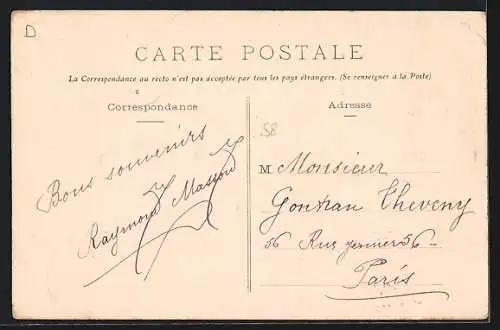 D
CARTE POSTALE
La Correspondance au recto n'est pas acceptée par tous les pays étrangers. (Se renseigner à la Poste)
Correspondance
Adresse
58
Bons souvenirs
Raymond Masson
M Monsieur
Gontran Theveny
56 Rue 56
Paris